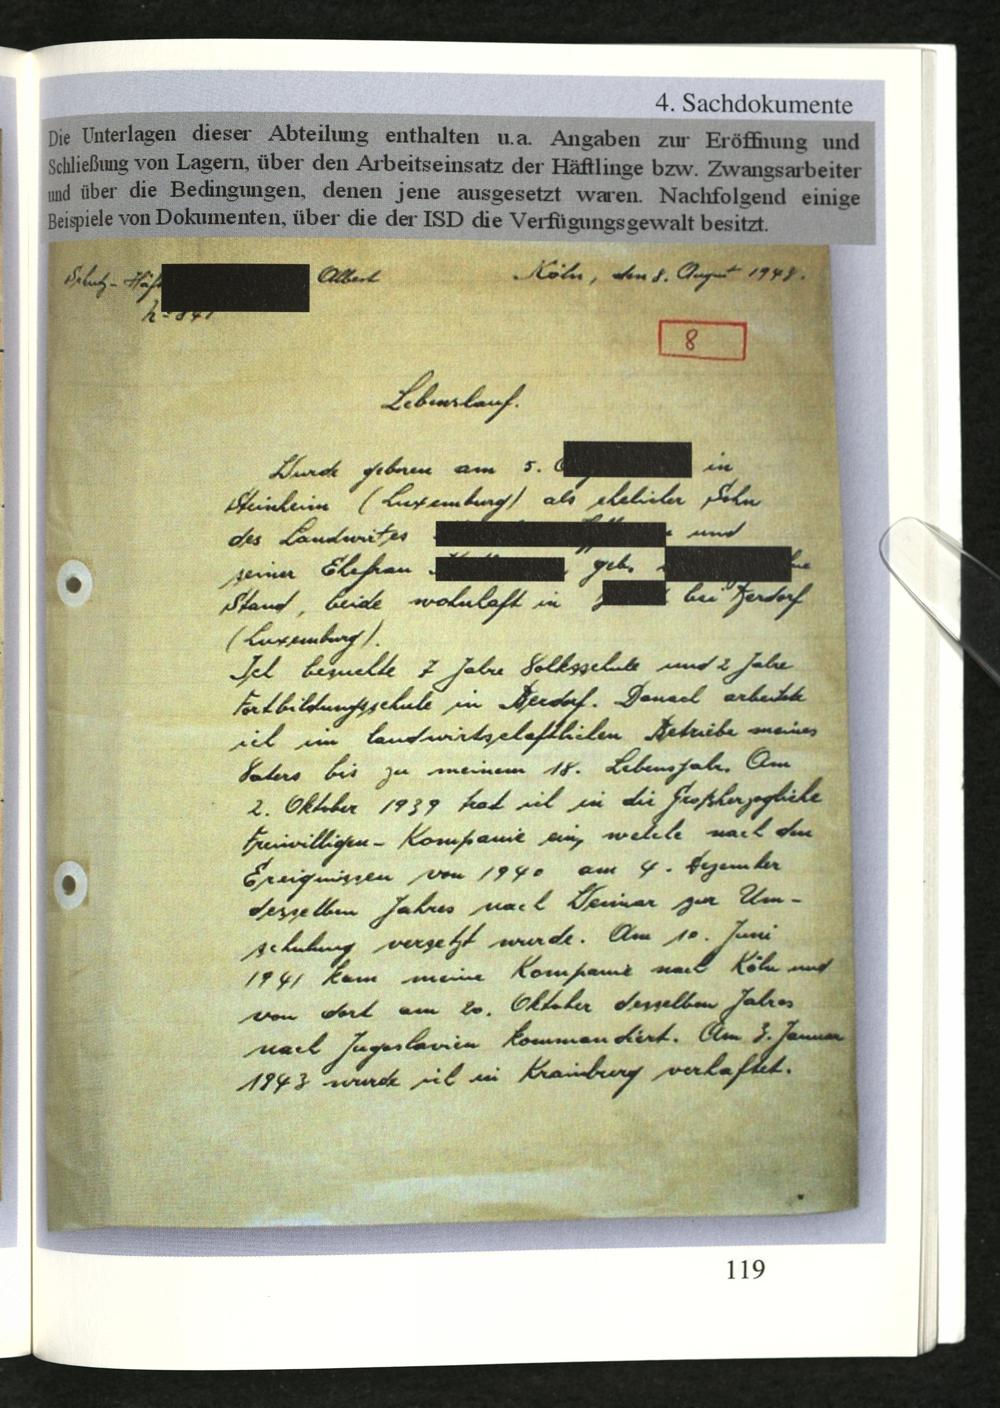 4. Sachdokumente
Die Unterlagen dieser Abteilung enthalten u.a. Angaben zur Eröffnung und
Schließung von Lagern, über den Arbeitseinsatz der Häftlinge bzw. Zwangsarbeiter
und über die Bedingungen, denen jene ausgesetzt waren. Nachfolgend einige
Beispiele von Dokumenten, über die der ISD die Verfügungsgewalt besitzt.
Schutz-Häft Albert Köln, den 8. August 1943.
8
Lebenslauf.
Wurde geboren am 5. in
Steinheim (Luxemburg) als ehelicher Sohn
des Landwirtes und
seiner Ehefrau geb.
Stand, beide wohnhaft in bei Berdorf
(Luxemburg).
Ich besuchte 7 Jahre Volksschule und 2 Jahre
Fortbildungsschule in Berdorf. Danach arbeitete
ich im landwirtschaftlichen Betriebe meines
Vaters bis zu meinem 18. Lebensjahr. Am
2. Oktober 1939 trat ich in die Großherzogliche
Freiwilligen-Kompanie ein, welche nach den
Ereignissen von 1940 am 4. Dezember
desselben Jahres nach Weimar zur Um-
schulung versetzt wurde. Am 10. Juni
1941 kam meine Kompanie nach Köln und
von dort am 20. Oktober desselben Jahres
nach Jugoslavien kommandiert. Am 3. Januar
1943 wurde ich in Krainburg verhaftet.
119